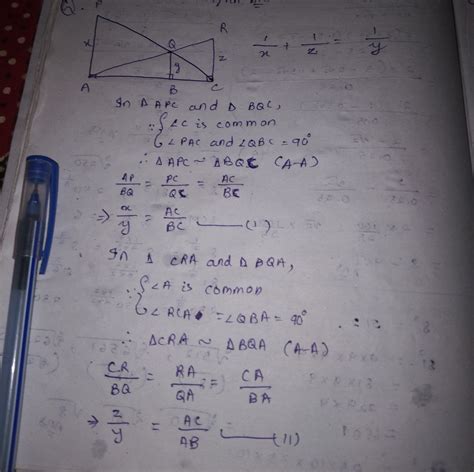 Q. P
R
x Q y z
A B C
1/x + 1/z = 1/y
In △ APC and △ BQC,
∵ { ∠C is common
∠PAC and ∠QBC = 90°
∴ △APC ~ △BQC (A-A)
AP/BQ = PC/QC = AC/BC
⇒ x/y = AC/BC —— (I)
In △ CRA and △ BQA,
∵ { ∠A is common
∠RCA = ∠QBA = 90°
∴ △CRA ~ △BQA (A-A)
CR/BQ = RA/QA = CA/BA
⇒ z/y = AC/AB —— (II)